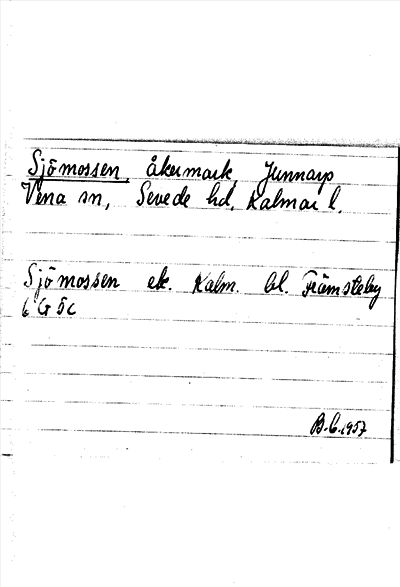 Sjömossen, åkermark, Junnarp
Vena sn, Sevede hd, Kalmar l.
Sjömossen ek. Kalm. bl. Främsteby
6 G 5c
B.C. 1957